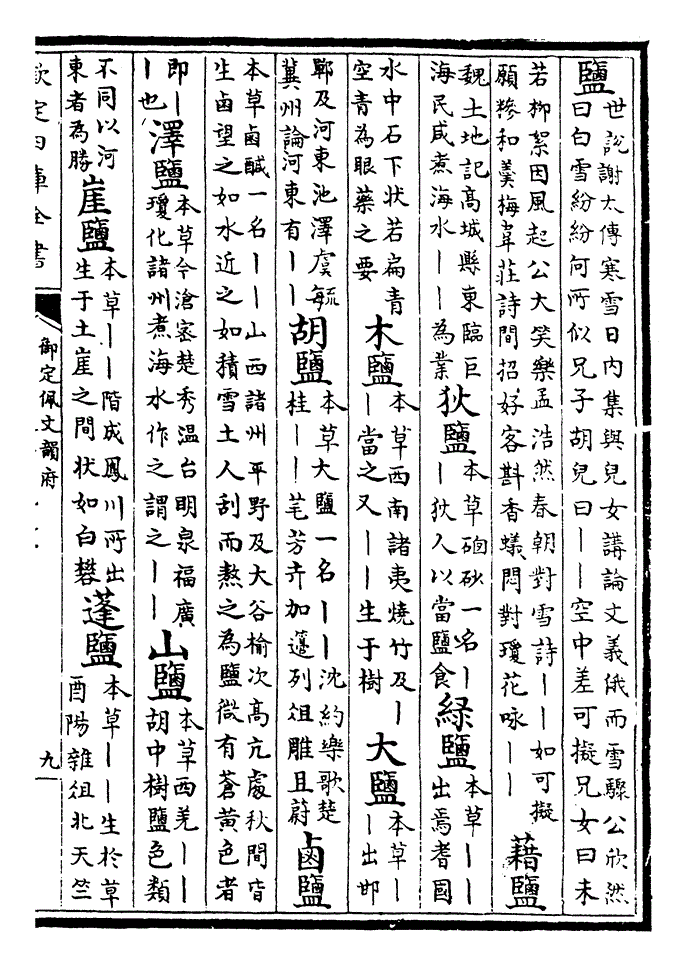 鹽
世説謝太傅寒雪日内集與兒女講論文義俄而雪驟公欣然
曰白雪紛紛何所似兄子胡兒曰丨丨空中差可擬兄女曰未
若柳絮因風起公大笑樂孟浩然春朝對雪詩丨丨如可擬
願糝和羹梅韋莊詩間招好客斟香蟻悶對瓊花咏丨丨
藉鹽
魏土地記高城縣東臨巨
海民咸煮海水丨丨為業
狄鹽
本草硇砂一名丨
丨狄人以當鹽食
緑鹽
本草丨丨
出焉耆國
水中石下状若扁青
空青為眼藥之要
木鹽
本草西南諸夷燒竹及丨
丨當之又丨丨生于樹
大鹽
本草丨
丨出邯
鄲及河東池澤虞毓
冀州論河東有丨丨
胡鹽
本草大鹽一名丨丨沈約樂歌楚
桂丨丨芼芳卉加籩列俎雕且蔚
鹵鹽
本草鹵鹹一名丨丨山西諸州平野及大谷榆次高亢處秋間皆
生鹵望之如水近之如積雪土人刮而熬之為鹽微有蒼黄色者
即丨
丨也
澤鹽
本草今滄密楚秀温台明泉福廣
瓊化諸州煮海水作之謂之丨丨
山鹽
本草西羌丨丨
胡中樹鹽色類
不同以河
東者為勝
崖鹽
本草丨丨階成鳳川所出
生于土崖之間状如白礬
蓬鹽
本草丨丨生於草
酉陽雜俎北天竺
欽定四庫全書
御定佩文韻府
九